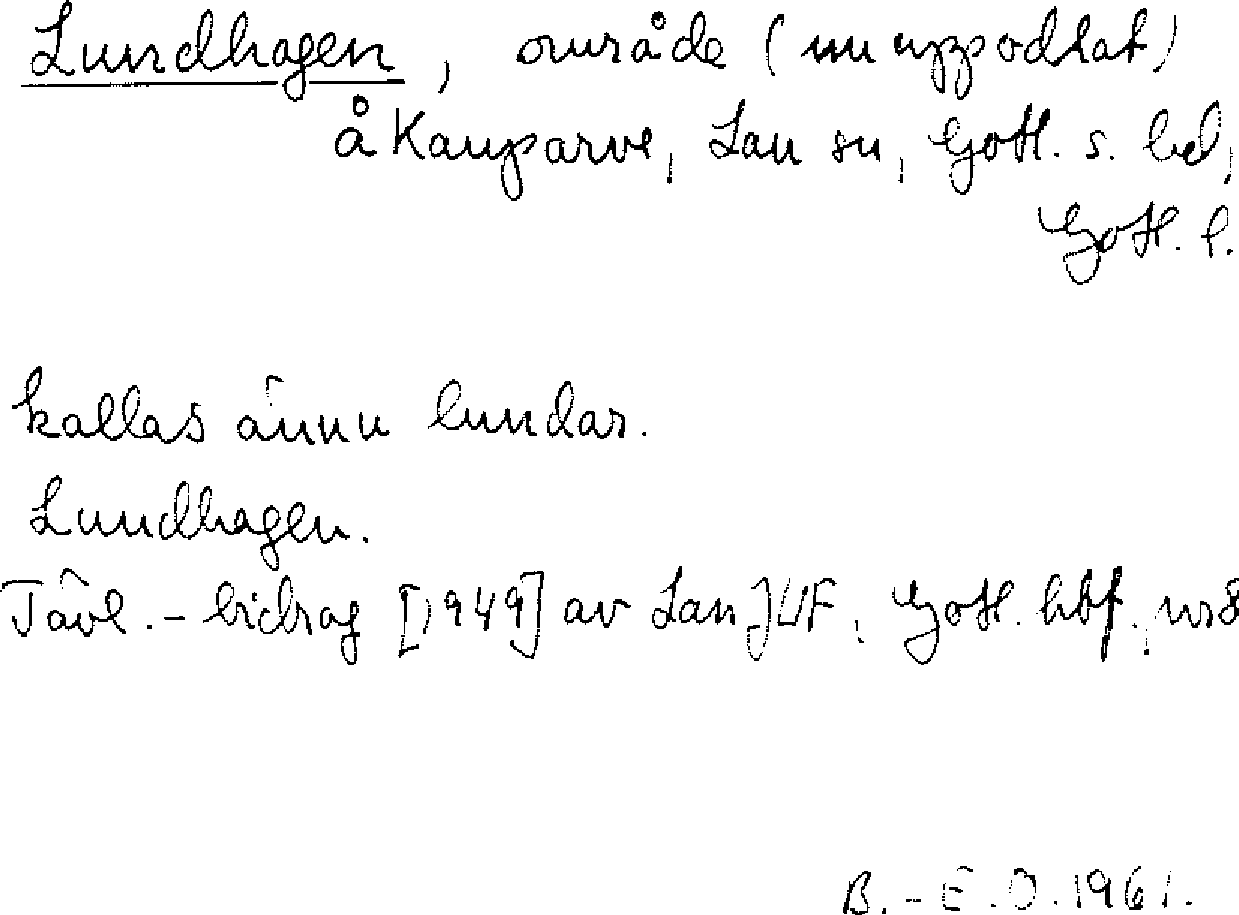 Lundhagen, område (nu uppodlat)
å Kauparve, Lau sn, Gotl. s. hd,
Gotl. l.
kallas ännu lundar.
Lundhagen.
Tävl.-bidrag [1949] av Lau JUF, Gotl. hbf., nr 8
B.-E. O. 1961.